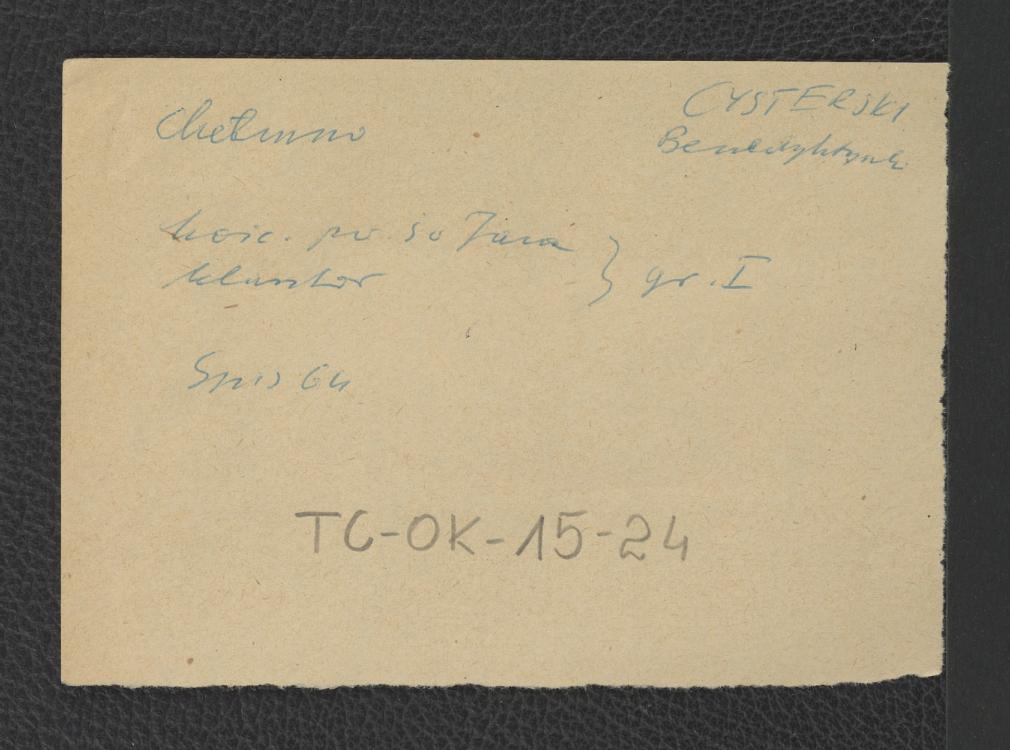 Chełmno
CYSTERSKI
Benedyktynki
kośc. pw. św Jana
klasztor } gr. I
Spis 64
TC-OK-15-24